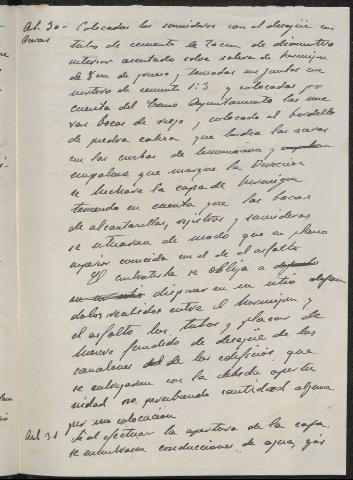 Art. 30 - Colocados los sumideros con el desagüe en
Aceras tubo de cemento de 20 cm de diametro
interior asentado sobre solera de hormigon
de 8 cm de grueso, tomadas sus juntas con
mortero de cemento 1:3 y colocadas por
cuenta del Excmo Ayuntamiento las nue
vas bocas de riego, y colocado el bordillo
de piedra caliza que limita las aceras
con las curvas de terminacion y
empalme que marque la Direccion
se hechara la capa de hormigon
teniendo en cuenta que las bocas
de alcantarillas, registros y sumideros
se situaran de modo que su plano
superior coincida con el de el asfalto
El contratista se obliga a
disponer en un sitio
dolos recibidos entre el hormigon y
el asfalto los tubos y placas de
hierro fundido de desagüe de los
canalones de los edificios, que
se entregaran con la debida oportu
nidad no percibiendo cantidad alguna
por su colocacion
Art 31 Si al efectuar la apertura de la capa
se encontraran conducciones de agua, gas